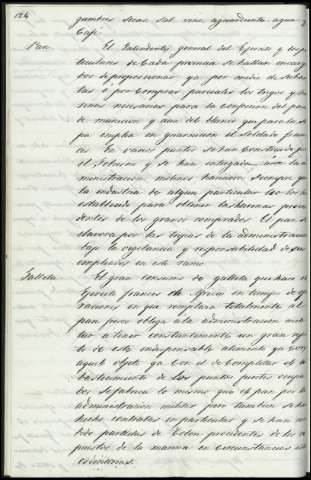 124
gumbres secas, sal, vino, aguardiente, agua y
Café.
Pan. El Intendente general del Ejercito y los par-
ticulares de Cada provincia se hallan encarga-
dos de proporcionar ya por medio de subas-
tas ó por compras parciales los trigos y ha-
rinas necesarias para la confeccion del pan
de municion y aun del blanco que para la so-
pa emplea en guarnicion el soldado fran-
ces. En varios puntos se han construido por
el Gobierno y se han entregado á la ad-
ministracion molinos harineros siempre que
la industria de algun particular no los ha
establecido para obtener las harinas proce-
dentes de los granos comprados. El pan se
elavora por las tropas de la administracion
bajo la vigilancia y responsabilidad de sus
empleados en este ramo.
Galleta. El gran consumo de galleta que hace el
Ejercito frances de Africa en tiempo de ope-
raciones en que remplaza totalmente al
pan fresco obliga á la administracion mili-
tar á tener constantemente un gran repues-
to de este indispensable alimento ya con
aquel objeto ya con el de completar el a-
bastecimiento de los puntos fuertes ocupa-
dos. Se fabrica lo mismo que el pan por la
administracion militar pero tambien se han
hecho contratas con particulares y se han reci-
bido partidas de Tolon procedentes de los re-
puestos de la marina en circunstancias es-